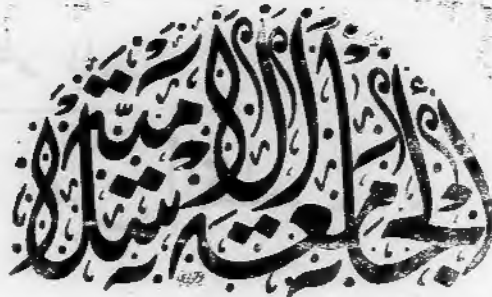 الجامعة الإسلامية